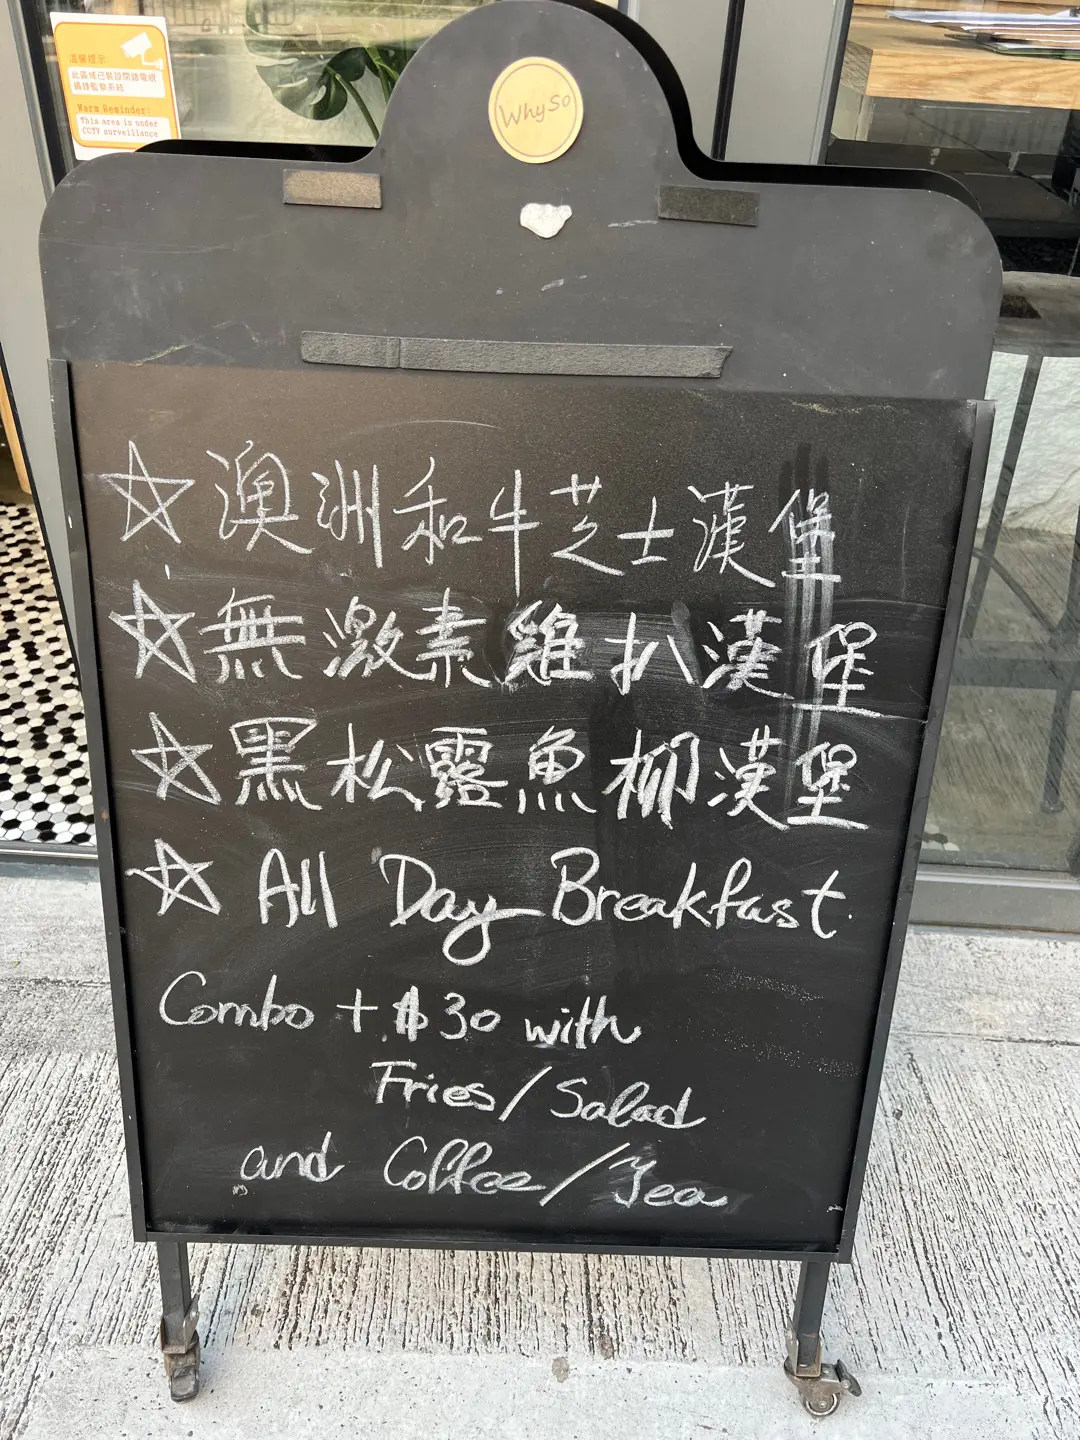 溫馨提示:
此區域已裝設閉路電視
攝錄監察系統
Warm Reminder:
This area is under
CCTV surveillance
WhySo
☆ 澳洲和牛芝士漢堡
☆ 無激素雞扒漢堡
☆ 黑松露魚柳漢堡
☆ All Day Breakfast
Combo + $30 with
Fries/Salad
and Coffee/Tea